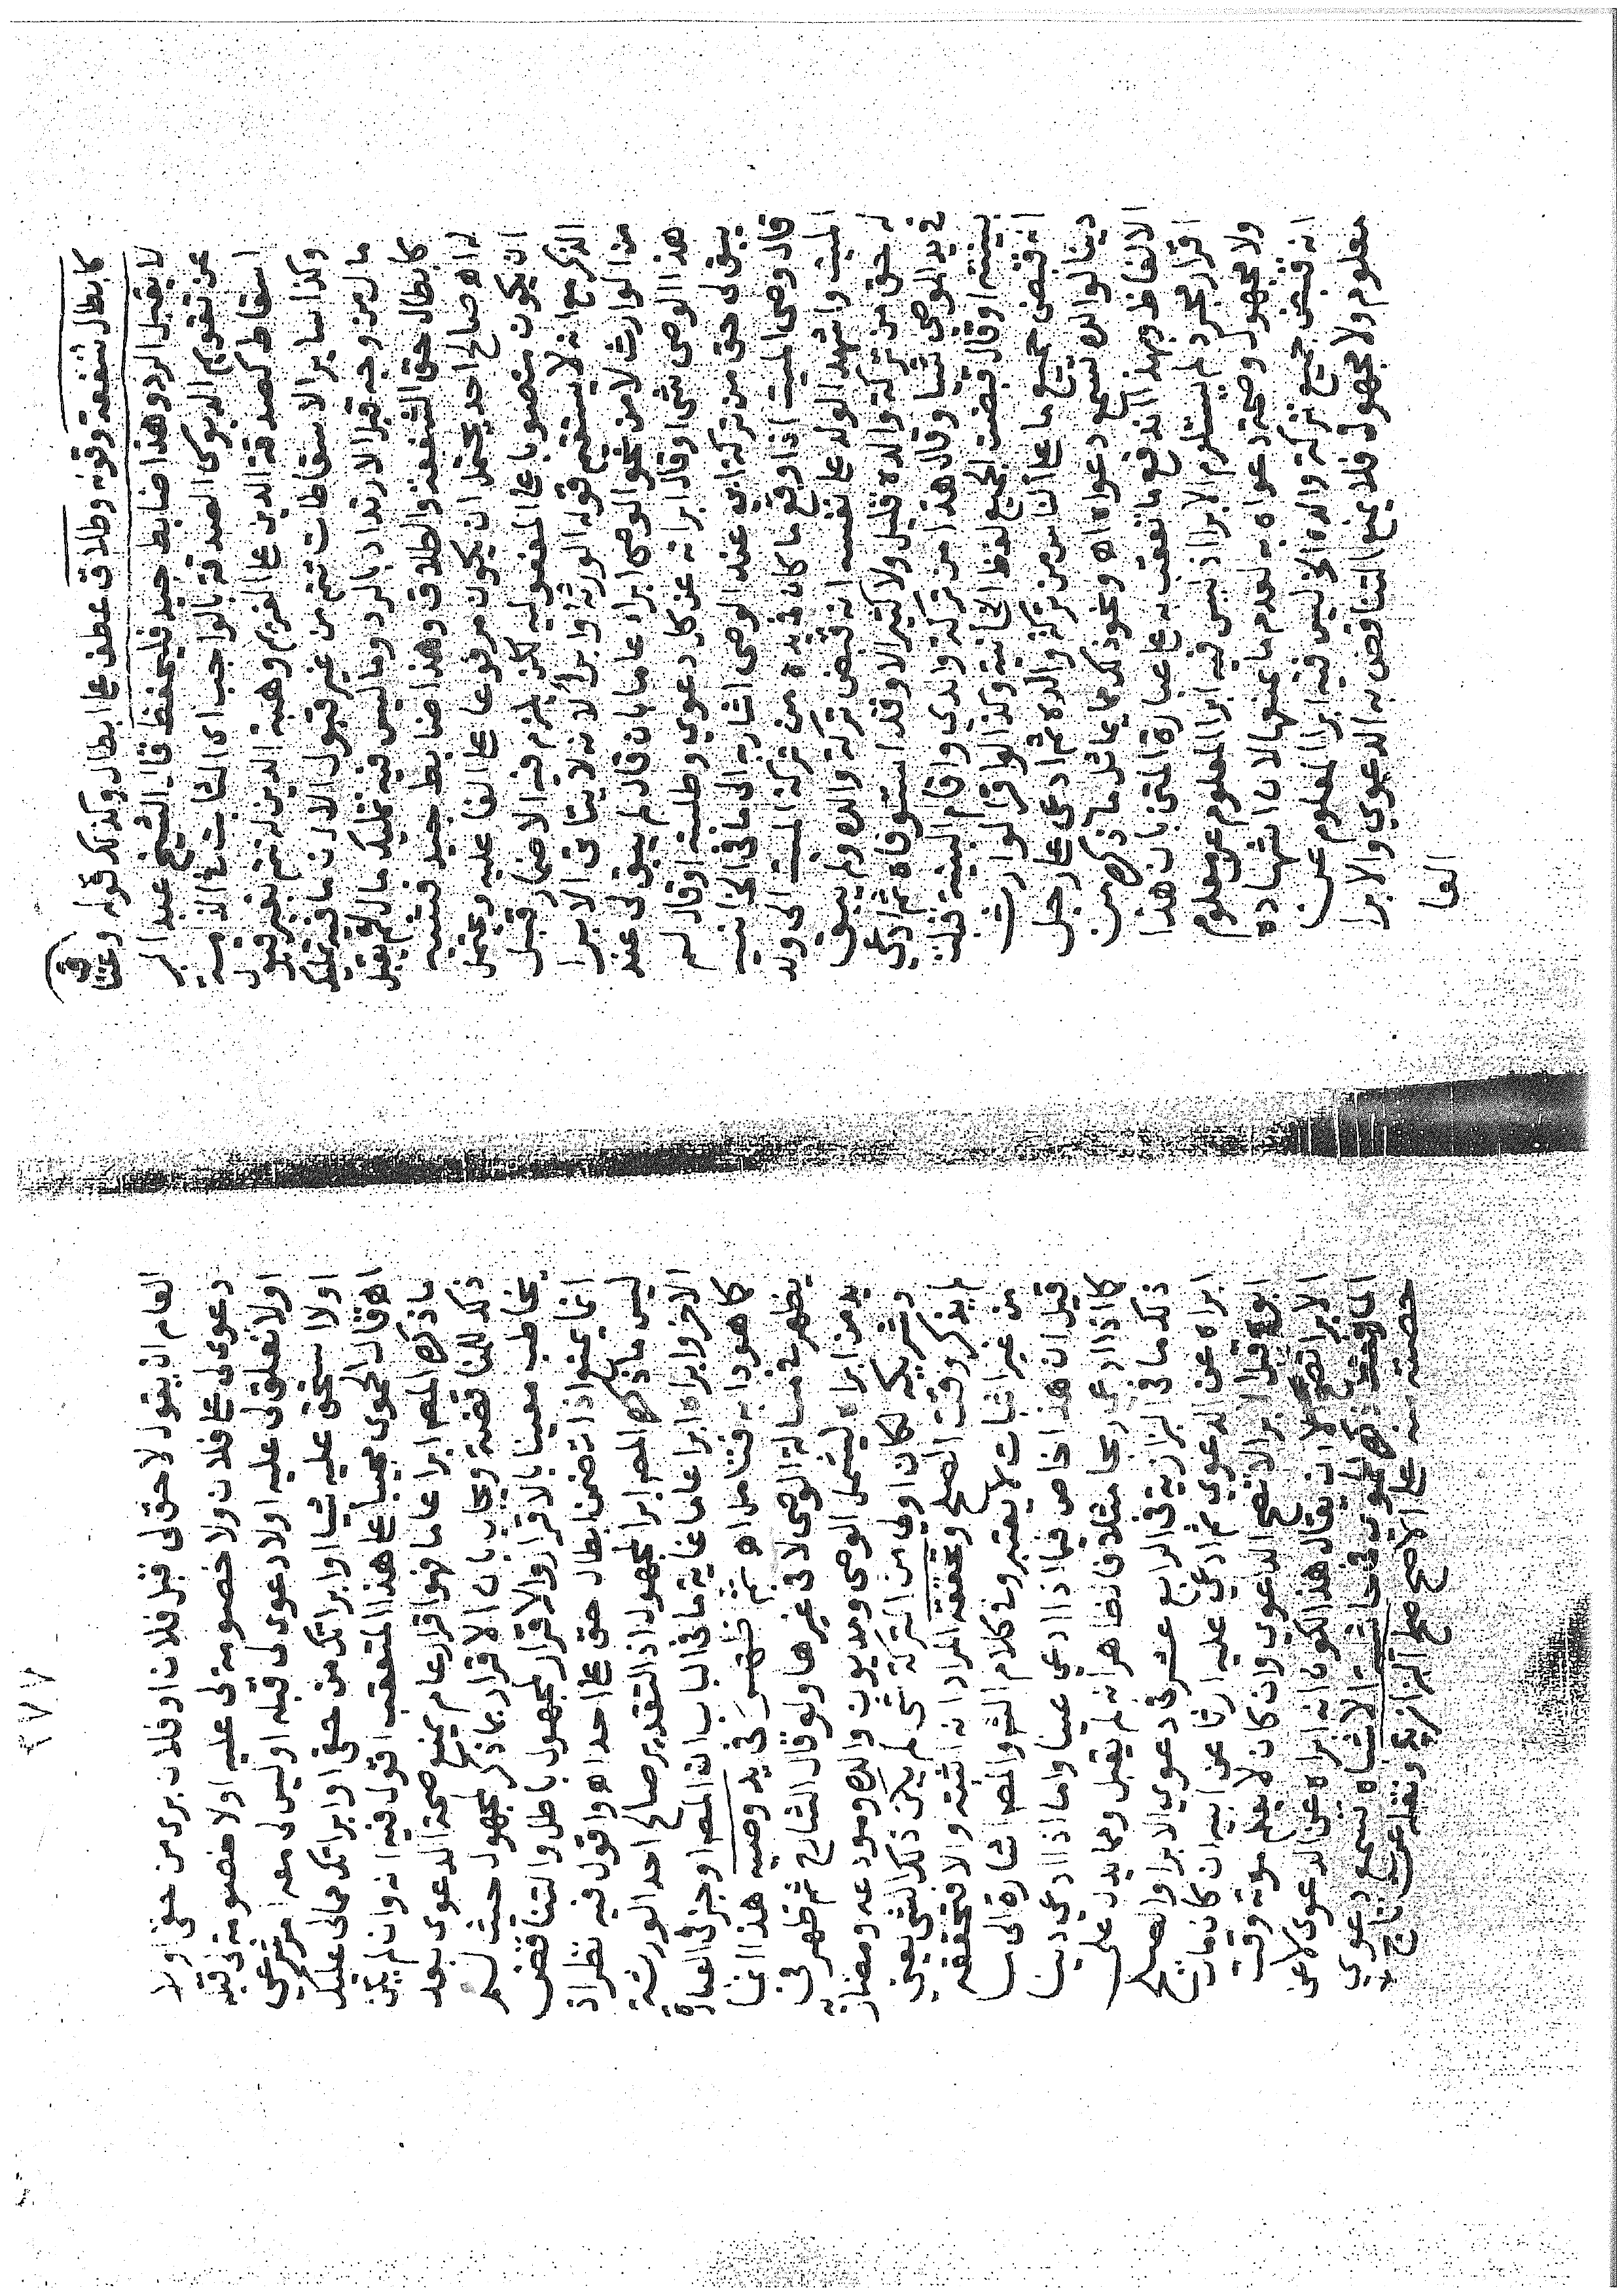 كابطال شفعة وقوف وطلاق عطف على ابطال وكذلك قوله وعتاق
لا يقبل الرد وهذا ضابط جيد فليحفظ قال الشيخ عبد البر
عن تقويم الدبوسي الصدقة بالواجب اى الثابت في الذمة
اسقاط كصدقة الدين على الغريم وهبة الدين له تتم بغير قبول
وكذا ساير الاسقاطات تتم من غير قبول الا ان ما فيه تمليك
مال من وجه قبل الارتداد بالرد وما ليس فيه تمليك مال لم يقبل
كابطال حق الشفعة والطلاق وهذا ضابط جيد فتنبه
له اه صالح احد يحتمل ان يكون مرفوعا على الفاعليه ويحتمل
ان يكون منصوبا على المفعوليه لكن يلزم فيه الاضمار قبل
الذكر مع انه لا يستقيم قوله الورثة وابرأ لانه لا يتاتى الابرا
من الوارث لا من نحو الوصى ابراء عاما بان قال لم يبق لى عند
هذا الوصى شى او قال ابراته عن كل دعوي وطلبه او قال له
يبق لى حق من تركة ابى عند الوصى اشار به الى ما في الخانيه
قال وصى الميت اذا دفع ما كان في يده من تركة الميت الى ولد
الميت واشهد الولد على نفسه انه قبض تركة والده ولم يبق
له حق من تركة والده قليل ولا كثير الا وقد استوفاه ثم ادعى
في يد الوصى شيا وقال هذا من تركة والدي واقام البينة قبلت
بينته او قال قبضت الجميع لفظ الخانية وكذا لو اقر الوارث
انه قبض جميع ما على الناس من تركة والده ثم ادعى على رجل
دينا لوالده تسمع دعواه اه ونحو ذلك مما يماثل ما ذكره من
الالفاظ وبهذا اندفع ما تعقب به على عبارة المتن بان هذا
اقرار مجرد لم يستلزم الابرا اذ ليس فيه ابرا المعلوم عن معلوم
ولا مجهول وصحة دعواه به لعدم ما يمنعها لان اشهاده
انه قبض جميع تركة والده الخ ليس فيه ابرا المعلوم عن
معلوم ولا مجهول فلا يمنع التناقض به الدعوي والابرا
العا
٤٧٧
العام ان يقول لا حق لى قبل فلان او فلان برى من حقى او لا
دعوى لى على فلان ولا خصومة لى عليه او لا خصومة لى قبله
او لا تعلق لى عليه او لا دعوى لى قبله او ليس لى معه امر شرعي
او لا استحق عليه شيا او ابراتك من حقى او ابراتك مما لى عليك
اه قال الحموى مجيبا على هذا المتعقب اقول فيه انه وان لم يكن
ما ذكره المص ابرا عاما فهو اقرار عام يمنع صحة الدعوى بعد
ذلك للمناقضة ويجاب بان الاقرار بما ذكر لمجهول حيث لم
يخاطب معينا بالاقرار والاقرار لمجهول باطل والتناقض
انما يمنع اذا تضمن ابطال حق على احد اه واقول فيه نظر اذ
ليس ما ذكره المص ابرا لمجهول اذ التقدير صالح احد الورثة
الاخر وابراه ابرا عاما غاية ما في الباب ان المص اوجز في العبارة
كما هو دابه فتامل اه ثم ظهر في يد وصيه هذا انما
يظهر في مسالة الوصى لا في غيرها ولو قال الشارح ثم ظهر في
يد من ابراه ليشمل الوصى ومديون والده ومودعه ومضاربه
وشريكه لكان اولى من التركة شى لم يكن ذلك الشى يعنى
لم يذكر وقت الصلح وتحققه المراد انه اثبته والا فتحققه
من غير اثبات لا يعتبر وفي كلام الشر والمص اشارة الى
قيل ان هذا خاص فيما اذا ادعى عينا واما اذا ادعى دينا
كما اذا ادعى ربحا مثلا فالظاهر انه لم يقبل ومما يدل على
ذلك ما في البزازية في الرابع عشر في دعوي الابرا والصلح
ابراه عن الدعوي ثم ادعى عليه ارثا عن ابيه ان كان مات
ابوه قبل الابرا لا تصح الدعوي وان كان لا يعلم موته وقت
الابرا تصح الا ان يقال هذا لكون انه ابراه عن الدعوي لا عن
المال ذكره الحموى في حاشيته الاشباه تسمع دعوي
حصته منه على الاصح صلح البزازية ونقله عن نتايج